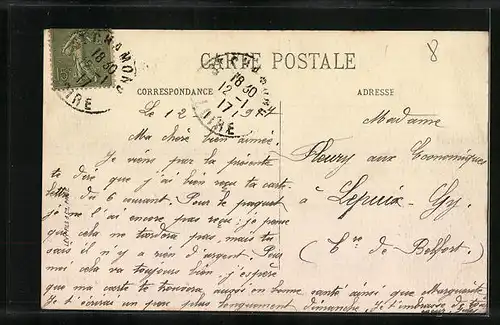 CARTE POSTALE
8
ST CHAMOND
18 30
12-1
17
LOIRE
15
CORRESPONDANCE
ADRESSE
Le 12 1917
Ma chère bien aimée.
Je viens par la présente
te dire que j'ai bien reçu ta carte
lettre du 6 courant. Pour le paquet
je ne l'ai encore pas reçu; je pense
que cela ne tardera pas, mais tu
sais il n'y a rien d'argent. Pour
moi cela va toujours bien, j'espère
que ma carte te trouvera aussi en bonne santé ainsi que Marguerite
Je t'écrirai un peu plus longuement dimanche. Je t'embrasse de tout
Madame
Fleury aux Economiques
à Lepuix-Gy
(Tre de Belfort)